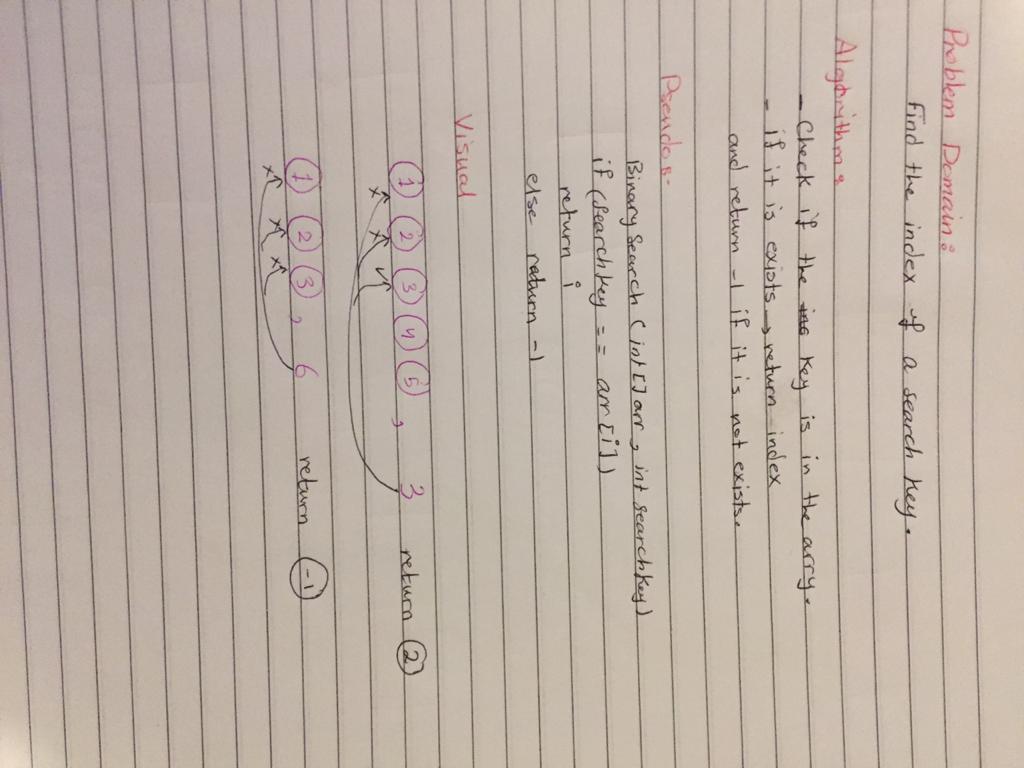 Problem Domain:
Find the index of a search key.
Algorithm:
- Check if the key is in the arry.
- if it is exists → return index
and return -1 if it is not exists.
Pseudo:-
Binary search (int[] arr, int searchkey)
if (searchkey == arr[i])
return i
else return -1
Visual
1 2 3 4 5 , 3 return 2
x x ✓
1 2 3 , 6 return -1
x x x